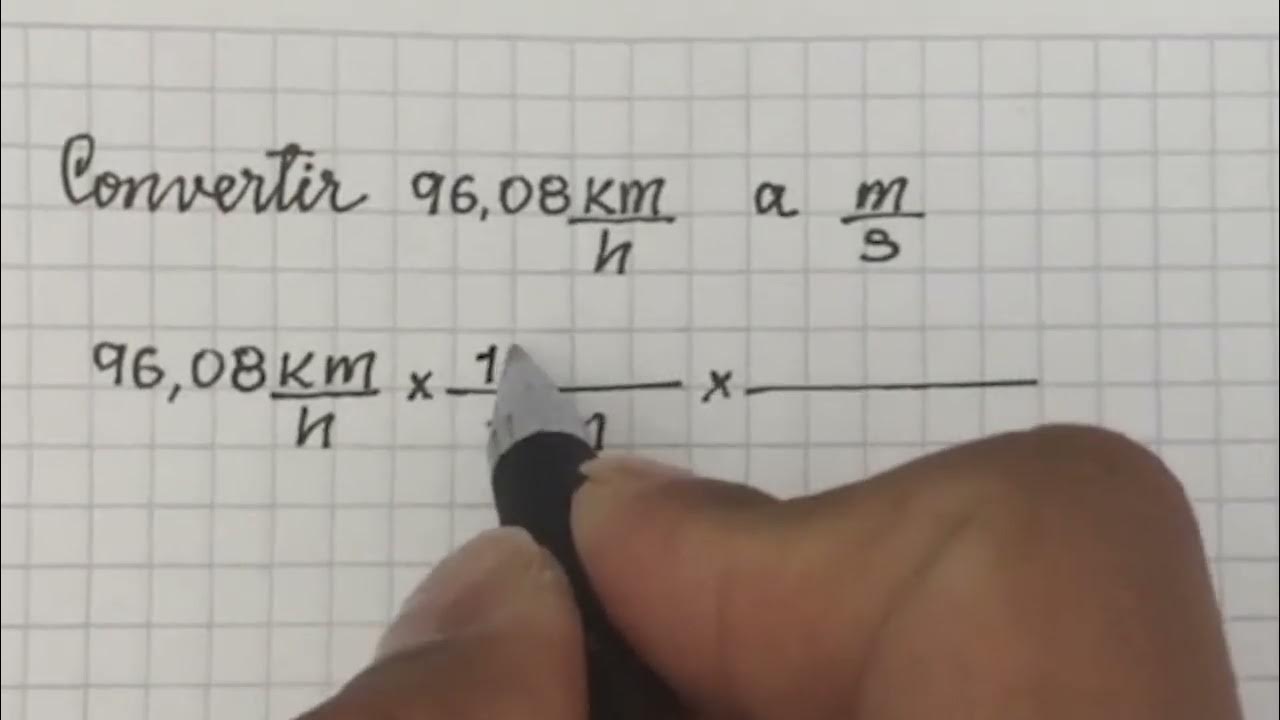 Convertir 96,08 km/h a m/s
96,08 km/h x 1 x